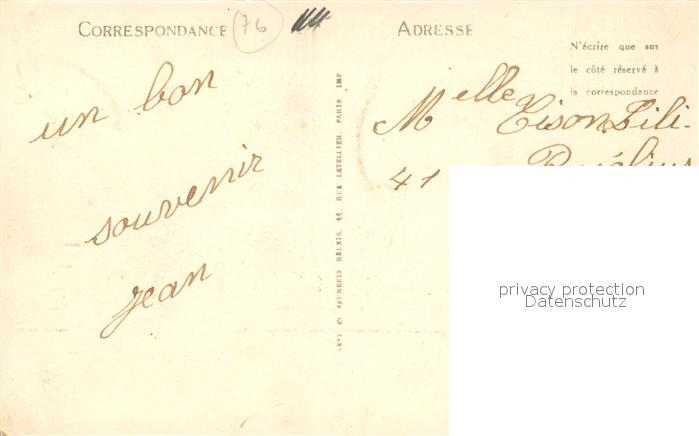 CORRESPONDANCE
76
ADRESSE
N'écrire que sur
le côté réservé à
la correspondance
un bon
souvenir
Jean
Melle Tison Lili-
41
RÉUNIS, 44, RUE LETELLIER, PARIS IMP.
privacy protection
Datenschutz